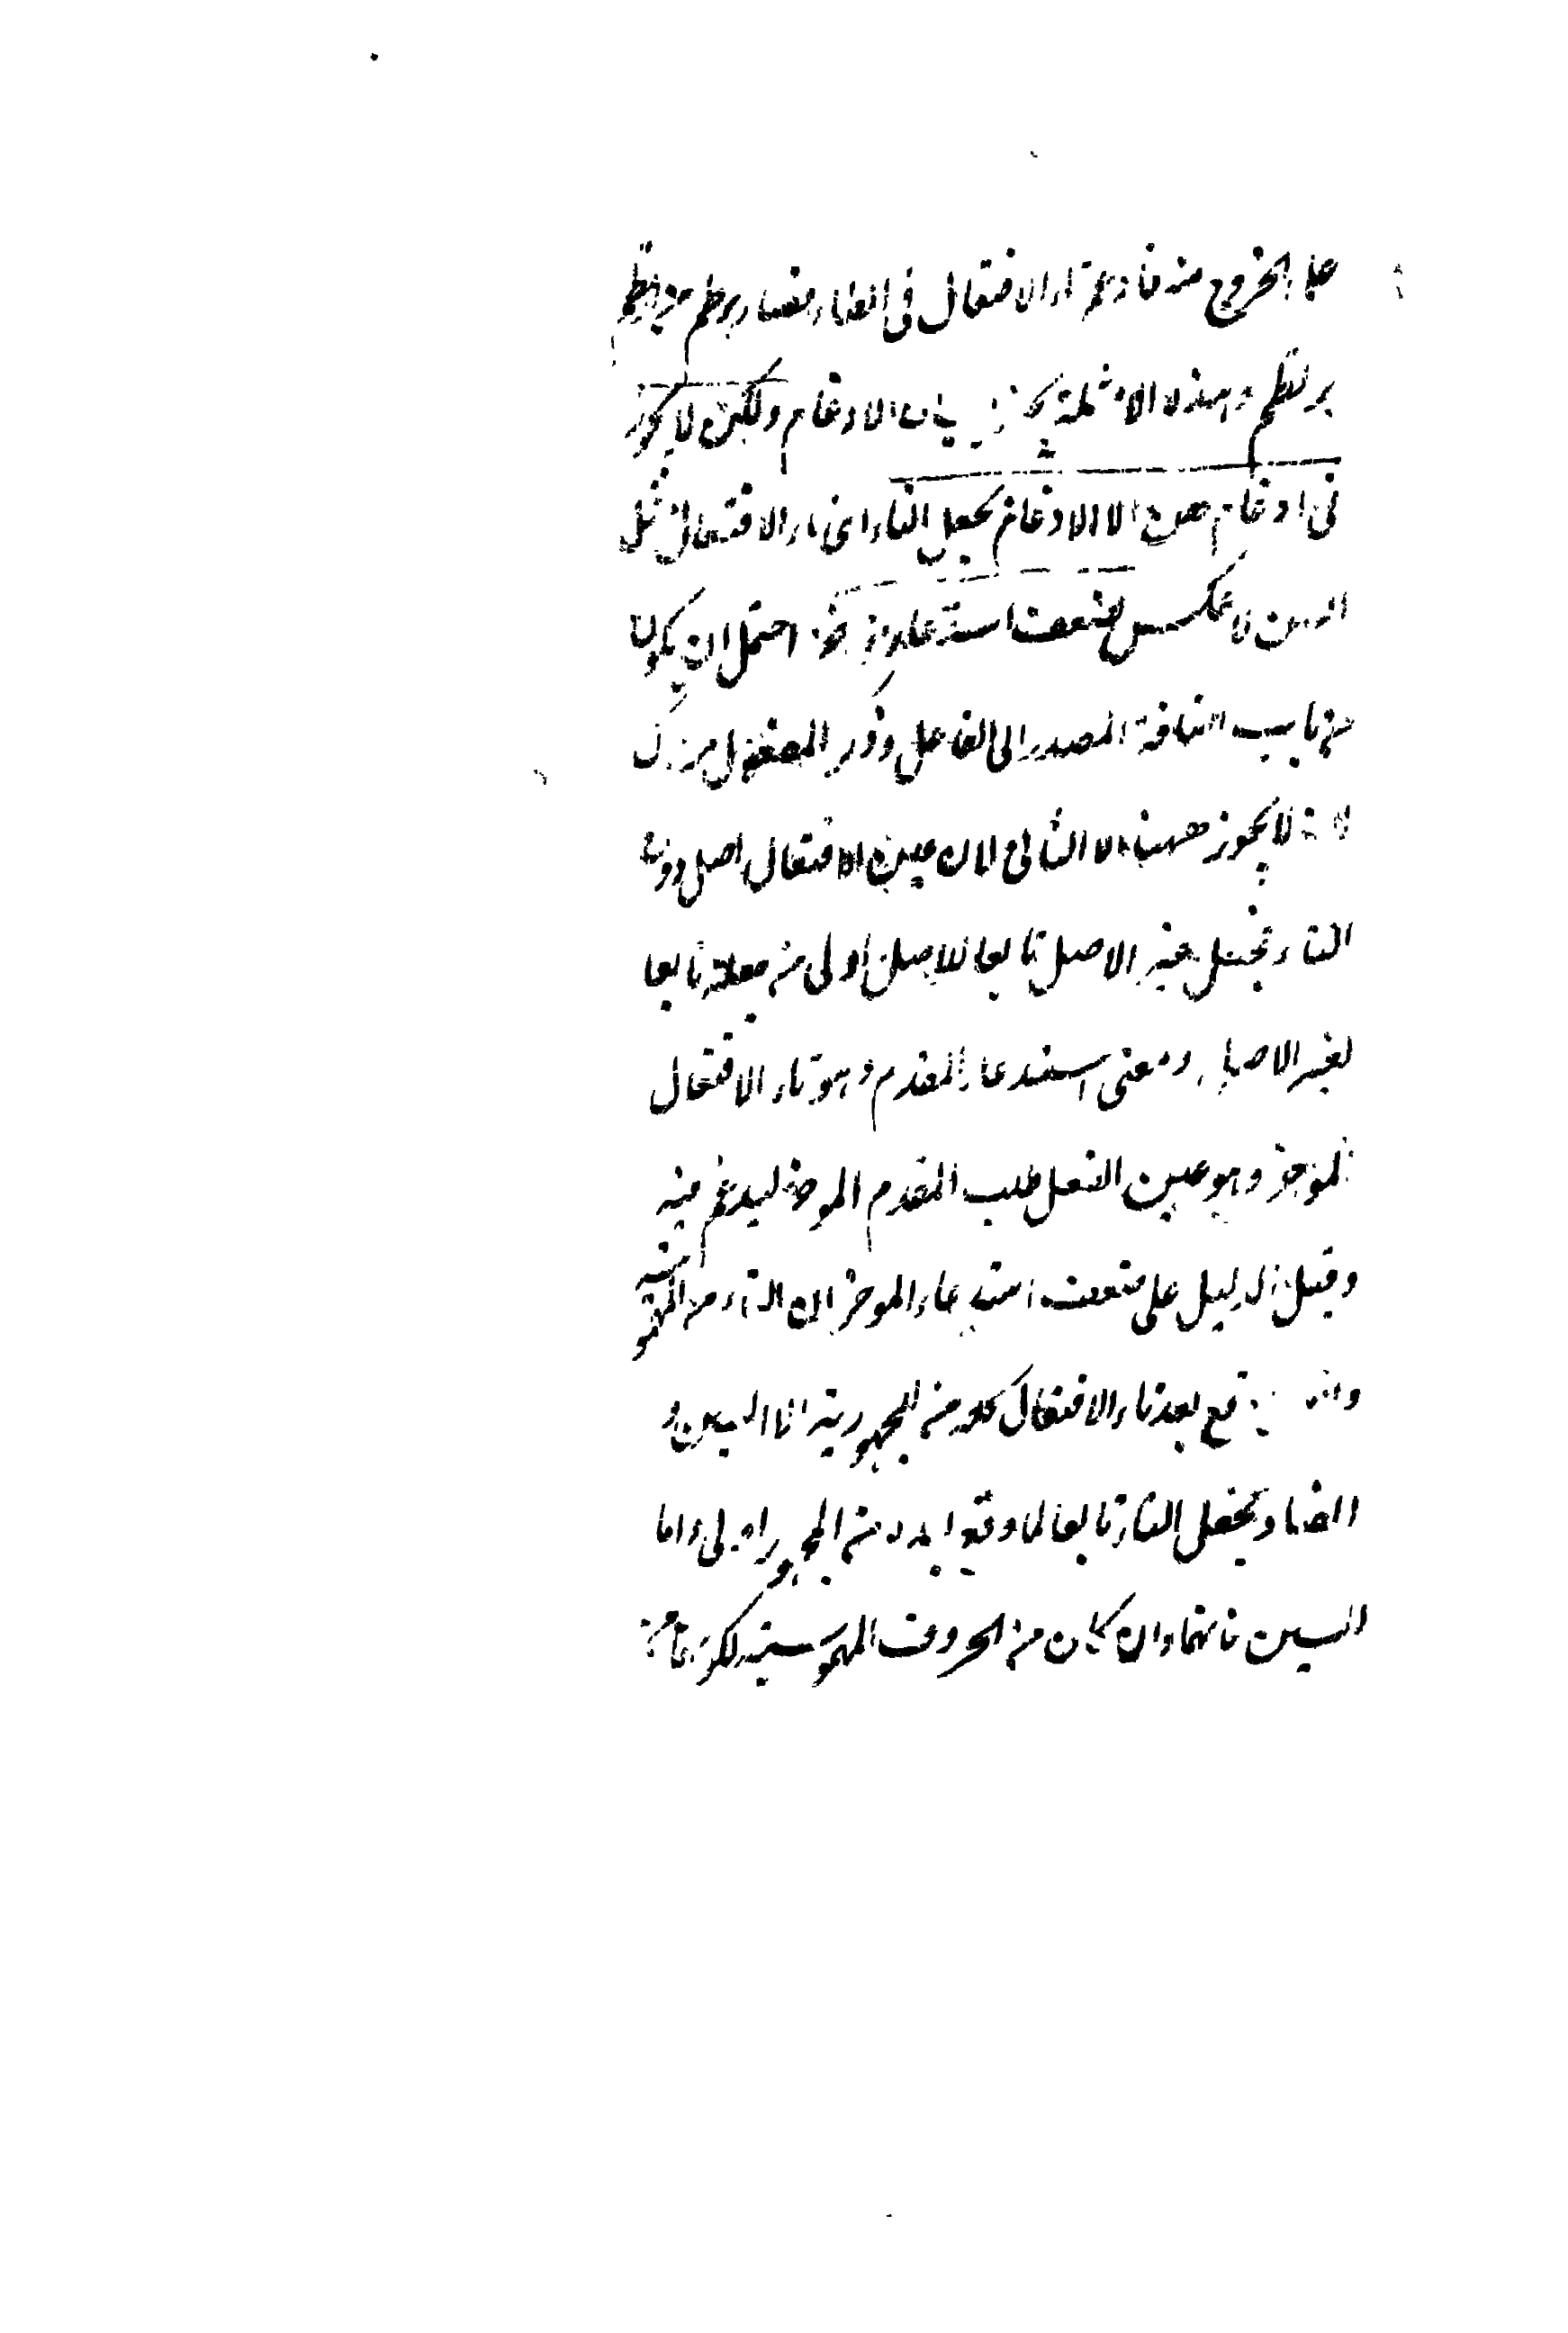 علم الخروج منه فادغم تاء الافتعال فى الطاء فصار يرطم من
يرتطم وهذه الامثلة يجوز بيان الادغام ولكن لا يجوز
فى ادغام هن الا الادغام بجعل التاء اى تاء الافتعال مثل
العين لا عكس لضعف استدعاء المؤخر احتمل ان يكون
من باب اضافة المصدر الى الفاعل وذكر المفعول متروك
لانه لا يجوز ههنا الا الثانى لان عين الافتعال اصل دون
التاء فجعل غير الاصل تابعا للاصل اولى من جعله تابعا
لغير الاصل ومعنى استدعاء المقدم وهو تاء الافتعال
المؤخر وهو عين الفعل طلب المقدم المؤخر ليدغم فيه
وقيل الدليل على ضعف استدعاء المؤخر ان التاء من
يقع بعد تاء الافتعال كله من المجهورية الا السين و
الصاد فجعل التاء تابعا لما وقع بعده من المجهور اولى واما
السين فانها وان كان من الحروف المهموسية لكن